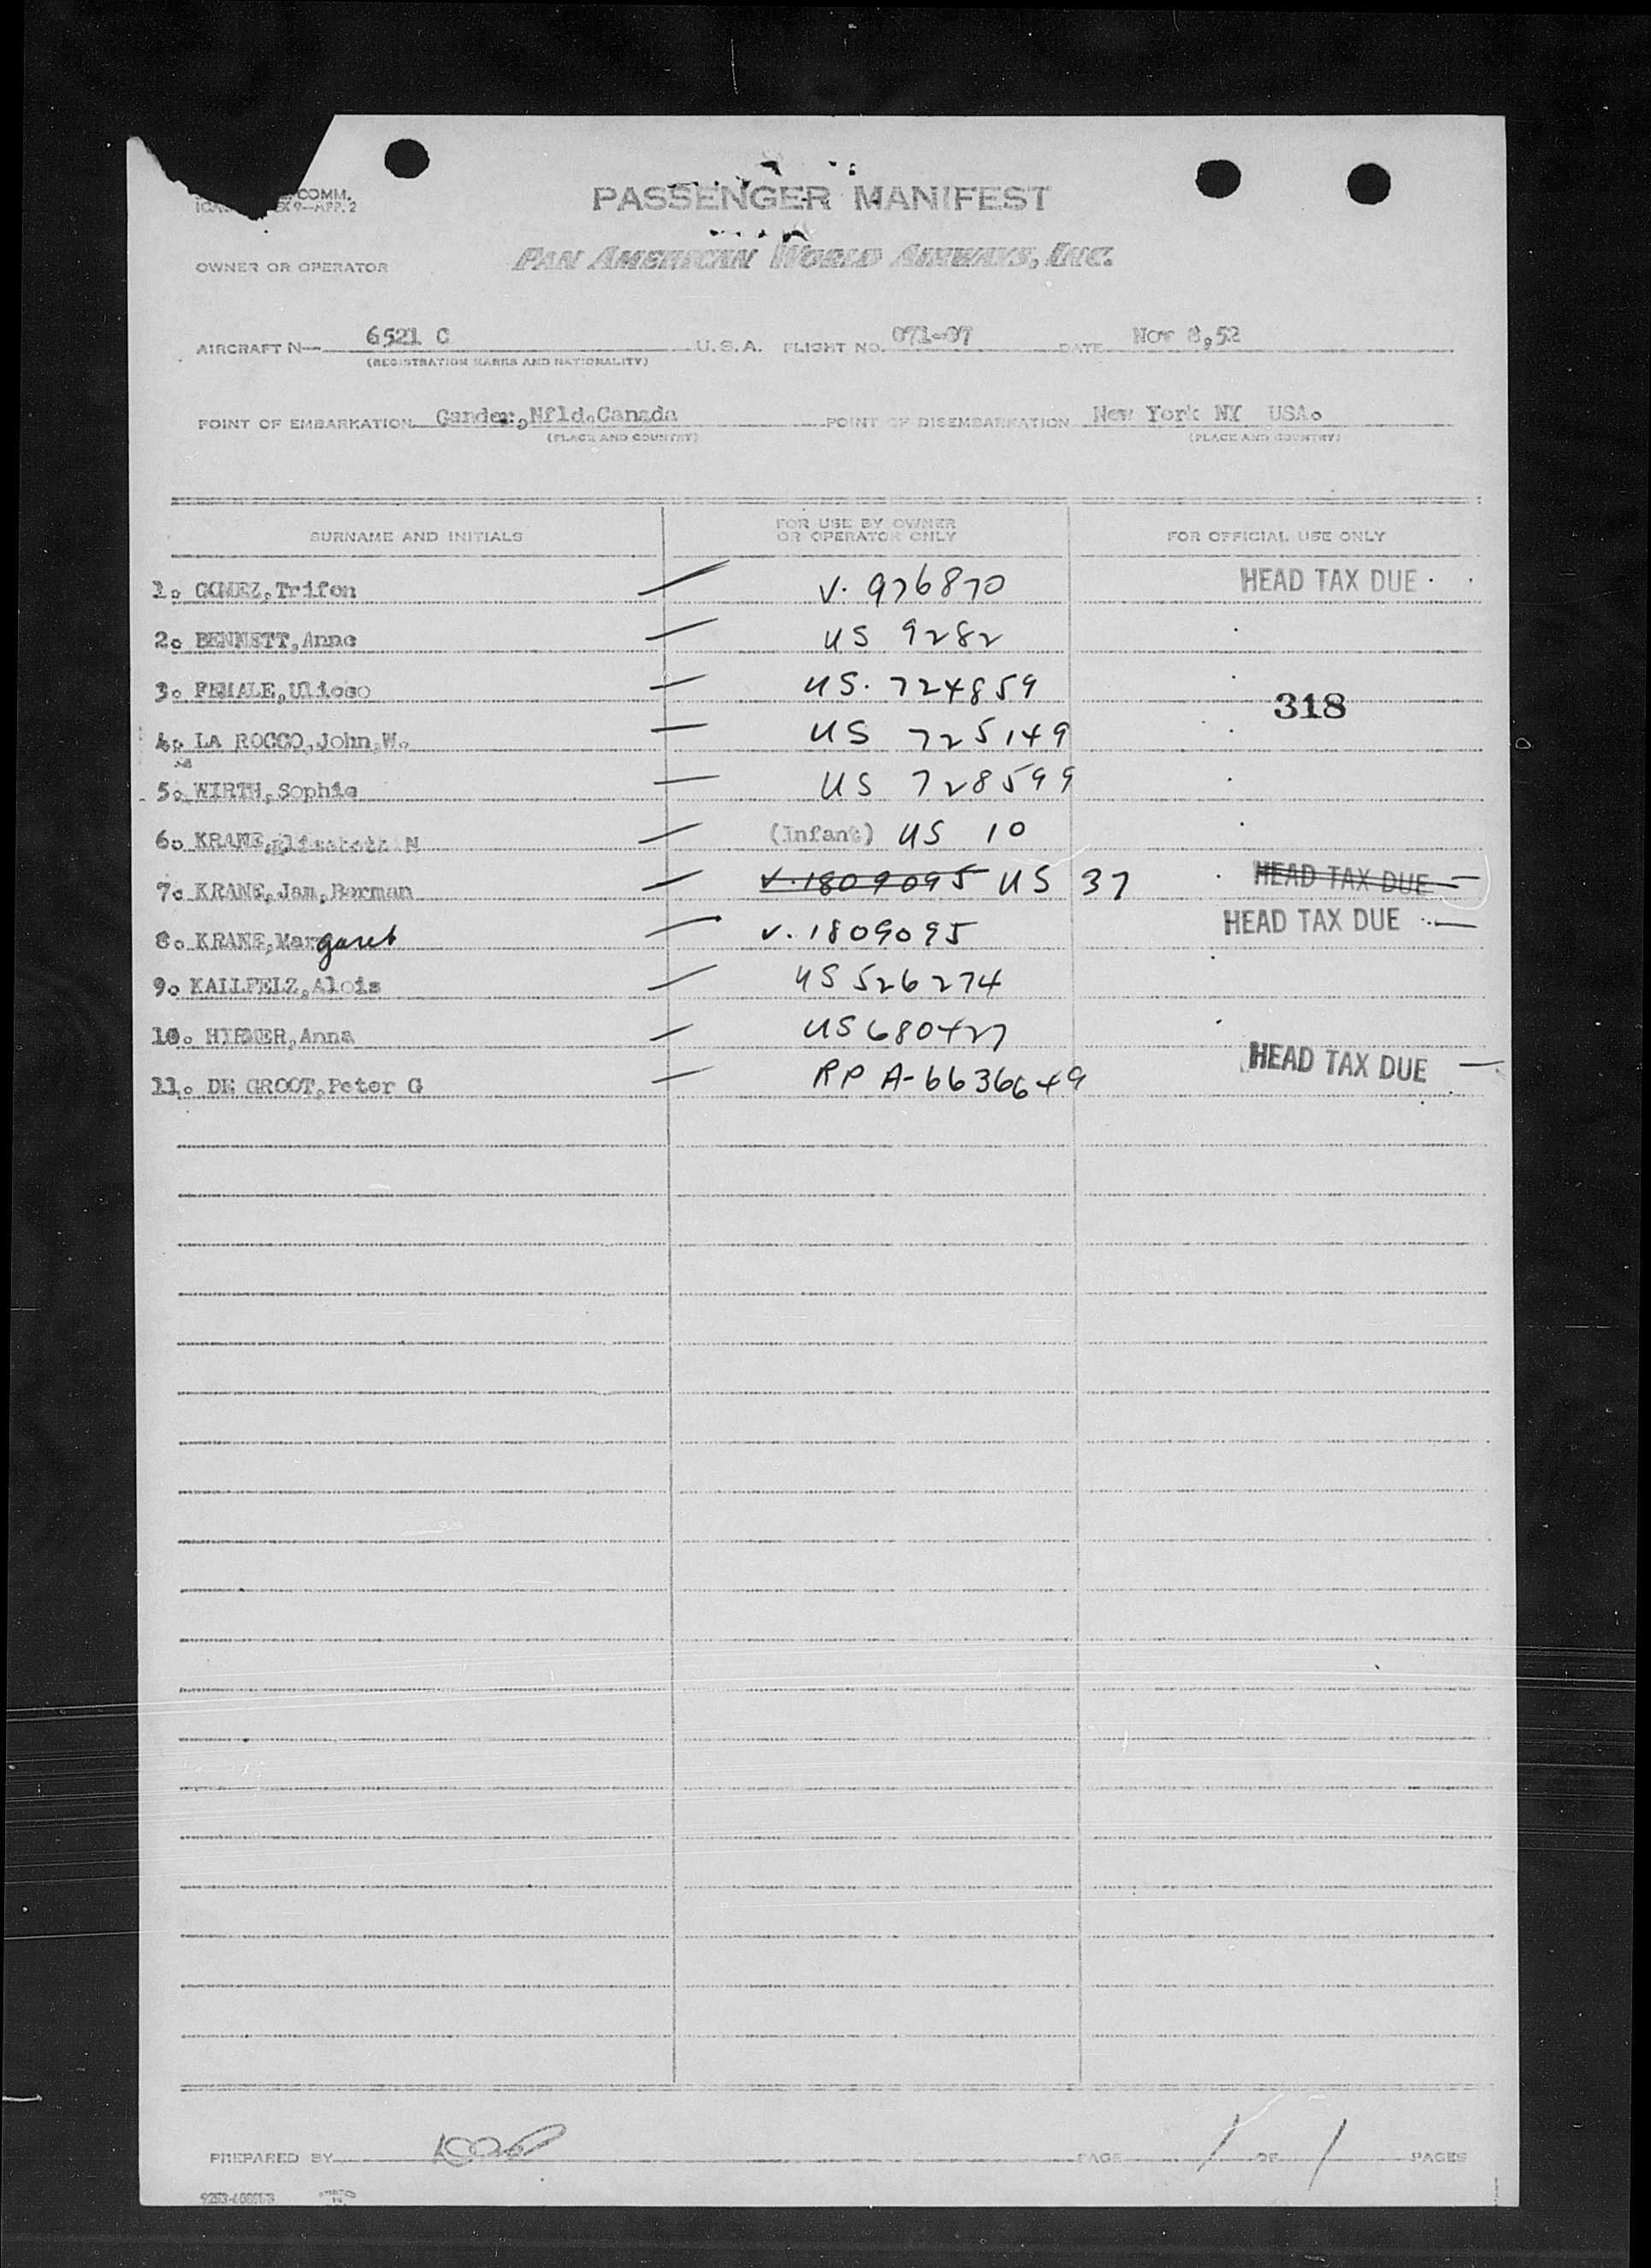 COMM.
9—APP. 2
PASSENGER MANIFEST
OWNER OR OPERATOR PAN AMERICAN WORLD AIRWAYS, INC.
AIRCRAFT N— 6521 C U.S.A. FLIGHT NO. 071-07 DATE Nov 8,52
(REGISTRATION MARKS AND NATIONALITY)
POINT OF EMBARKATION Gander,Nfld.Canada POINT OF DISEMBARKATION New York NY USA.
(PLACE AND COUNTRY) (PLACE AND COUNTRY)
SURNAME AND INITIALS FOR USE BY OWNER OR OPERATOR ONLY FOR OFFICIAL USE ONLY
1. GOMEZ,Trifon — V. 976870 HEAD TAX DUE
2. BENNETT,Anne — US 9282
3. FEMALE,Ulioso — US. 724859
318
4. LA ROCCO,John,W. — US 725149
5. WIRTH,Sophie — US 728599
6. KRANE,Elisabeth N — (Infant) US 10
7. KRANE,Jam,Berman — V.1809095 US 37 HEAD TAX DUE —
8. KRANE,Margaret — V. 1809095 HEAD TAX DUE —
9. KALLFELZ,Alois — US 526274
10. HIRMER,Anna — US 680427
11. DE GROOT,Peter G — RP A-6636649 HEAD TAX DUE —
PREPARED BY PAGE 1 OF 1 PAGES